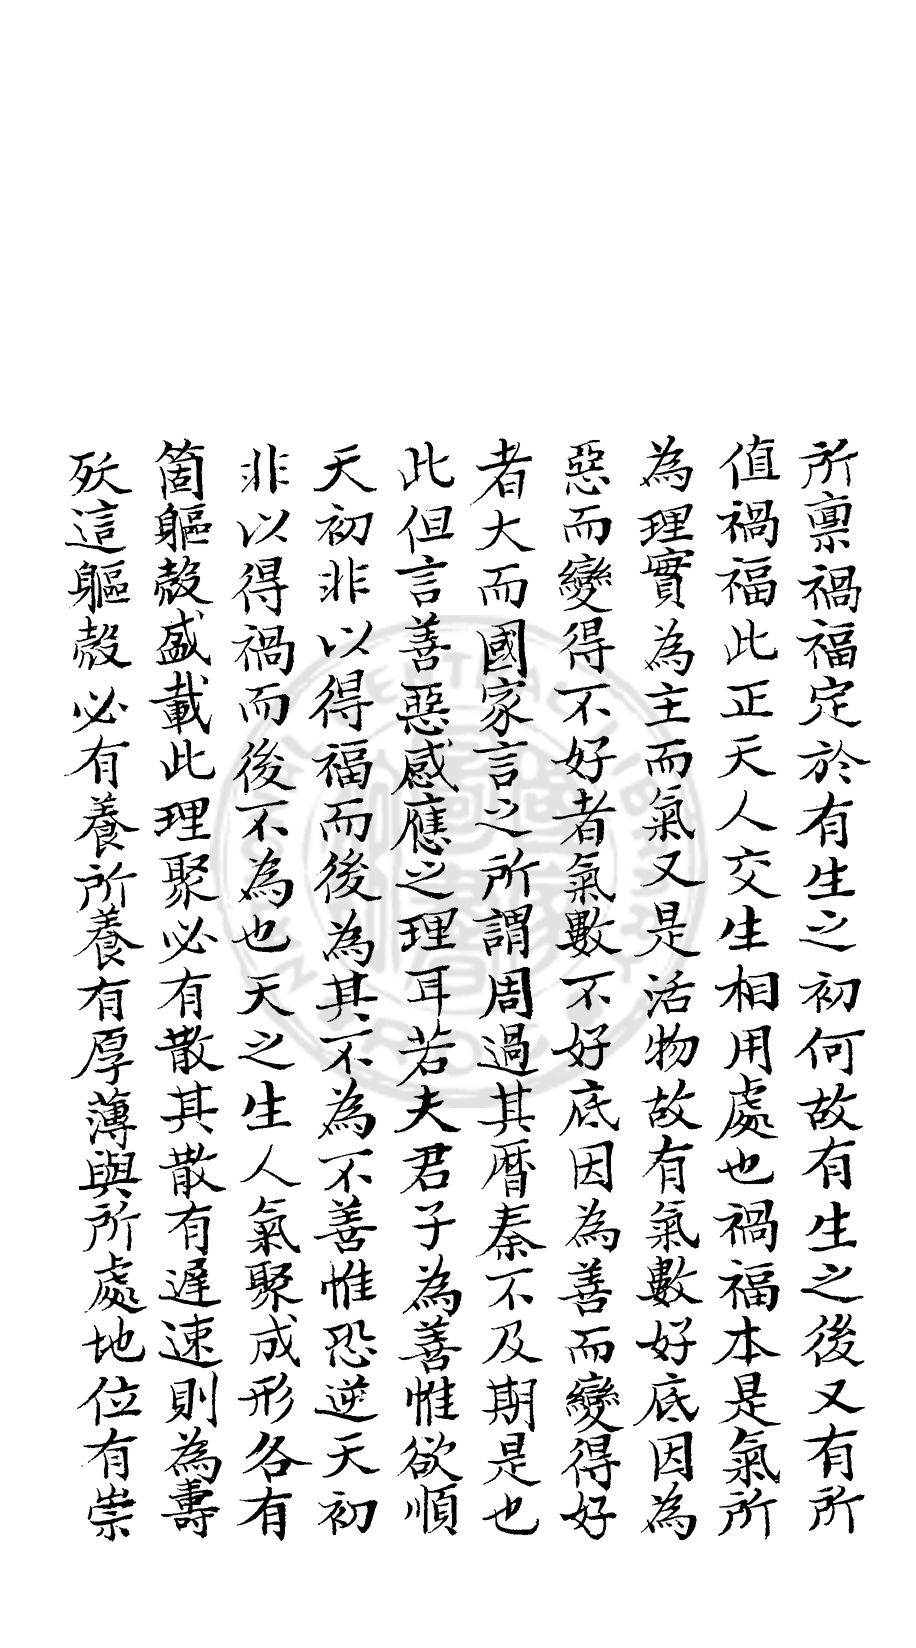 所稟禍福定於有生之初何故有生之後又有所
值禍福此正天人交生相用處也禍福本是氣所
為理實為主而氣又是活物故有氣數好底因為
惡而變得不好者氣數不好底因為善而變得好
者大而國家言之所謂周過其曆秦不及期是也
此但言善惡感應之理耳若夫君子為善惟欲順
天初非以得福而後為其不為不善惟恐逆天初
非以得禍而後不為也天之生人氣聚成形各有
箇軀殼盛載此理聚必有散其散有遲速則為壽
殀這軀殼必有養所養有厚薄與所處地位有崇